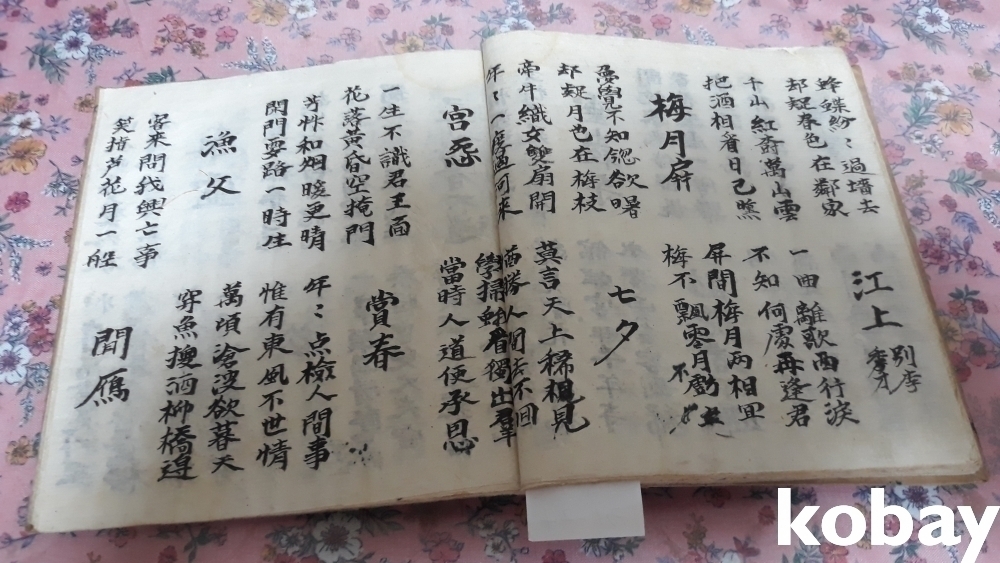 蜂蝶紛〻過墻去
却疑春色在鄰家
江上 別李秀才
千山紅樹萬山雲
把酒相看日已曛
一曲離歌兩行淚
不知何處再逢君
梅月屏
屏間梅月兩相宜
梅不飄零月不虧
覺不知窓欲曙
却疑月也在梅枝
七夕
牽牛織女雙扇開
年〻一度過河來
莫言天上稀相見
猶勝人間去不回
宮怨
學掃蛾眉獨出群
當時人道便承恩
一生不識君王面
花落黃昏空掩門
賞春
芳艸和烟暖更晴
閑門要路一時生
年〻点檢人間事
惟有東風不世情
漁父
萬頃滄波欲暮天
穿魚換酒柳橋邊
客來問我興亡事
笑指芦花月一船
聞鴈
kobay